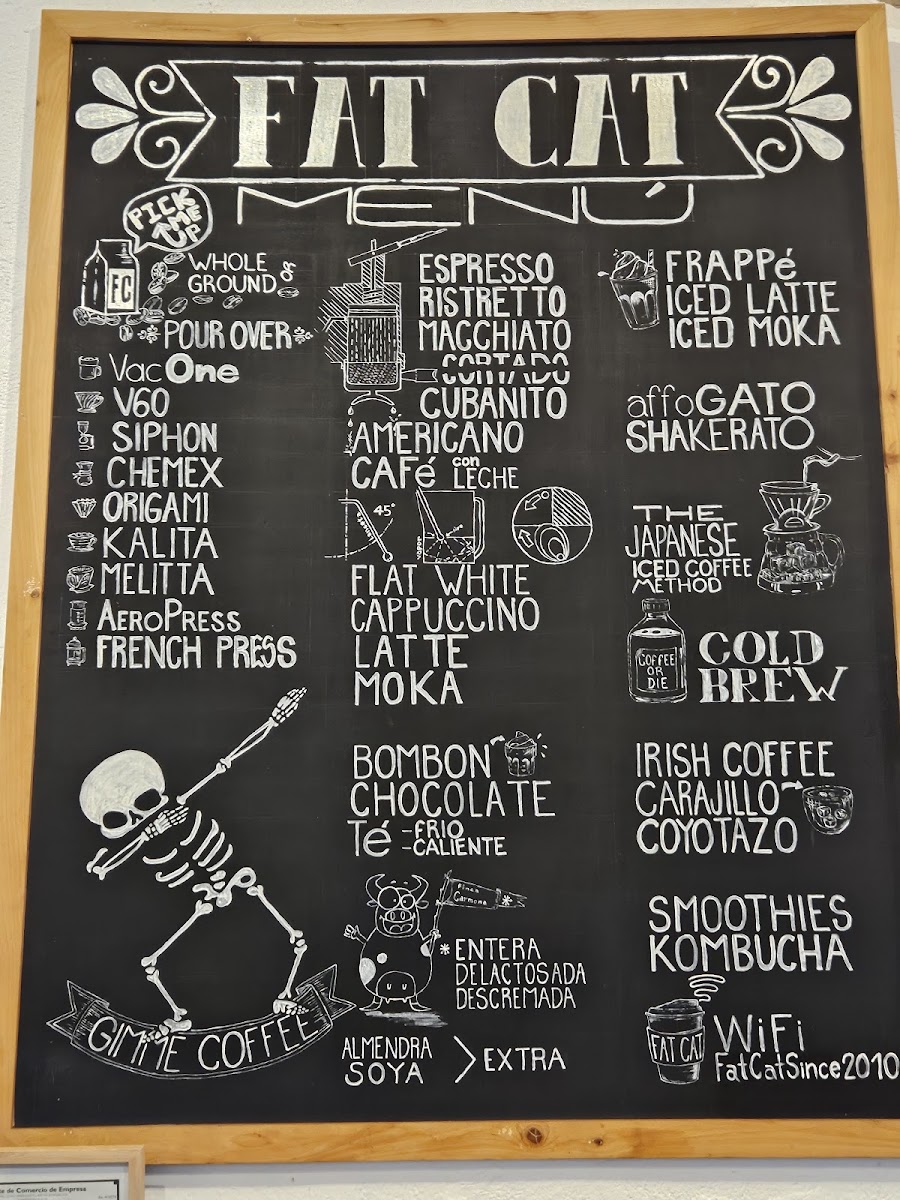 FAT CAT
MENÚ
PICK
ME
UP
FC
WHOLE
OR
GROUND
POUR OVER
VacOne
V60
SIPHON
CHEMEX
ORIGAMI
KALITA
MELITTA
AEROPRESS
FRENCH PRESS
GIMME COFFEE
ESPRESSO
RISTRETTO
MACCHIATO
CORTADO
CUBANITO
AMERICANO
CAFé con LECHE
45°
FLAT WHITE
CAPPUCCINO
LATTE
MOKA
BOMBON
CHOCOLATE
Té -FRIO
-CALIENTE
Finca
Carmona *
*ENTERA
DELACTOSADA
DESCREMADA
ALMENDRA
SOYA > EXTRA
FRAPPé
ICED LATTE
ICED MOKA
affoGATO
SHAKERATO
THE
JAPANESE
ICED COFFEE
METHOD
COFFEE
OR
DIE
COLD
BREW
IRISH COFFEE
CARAJILLO
COYOTAZO
SMOOTHIES
KOMBUCHA
FAT CAT
WiFi
FatCatSince2010
de Comercio de Empresa